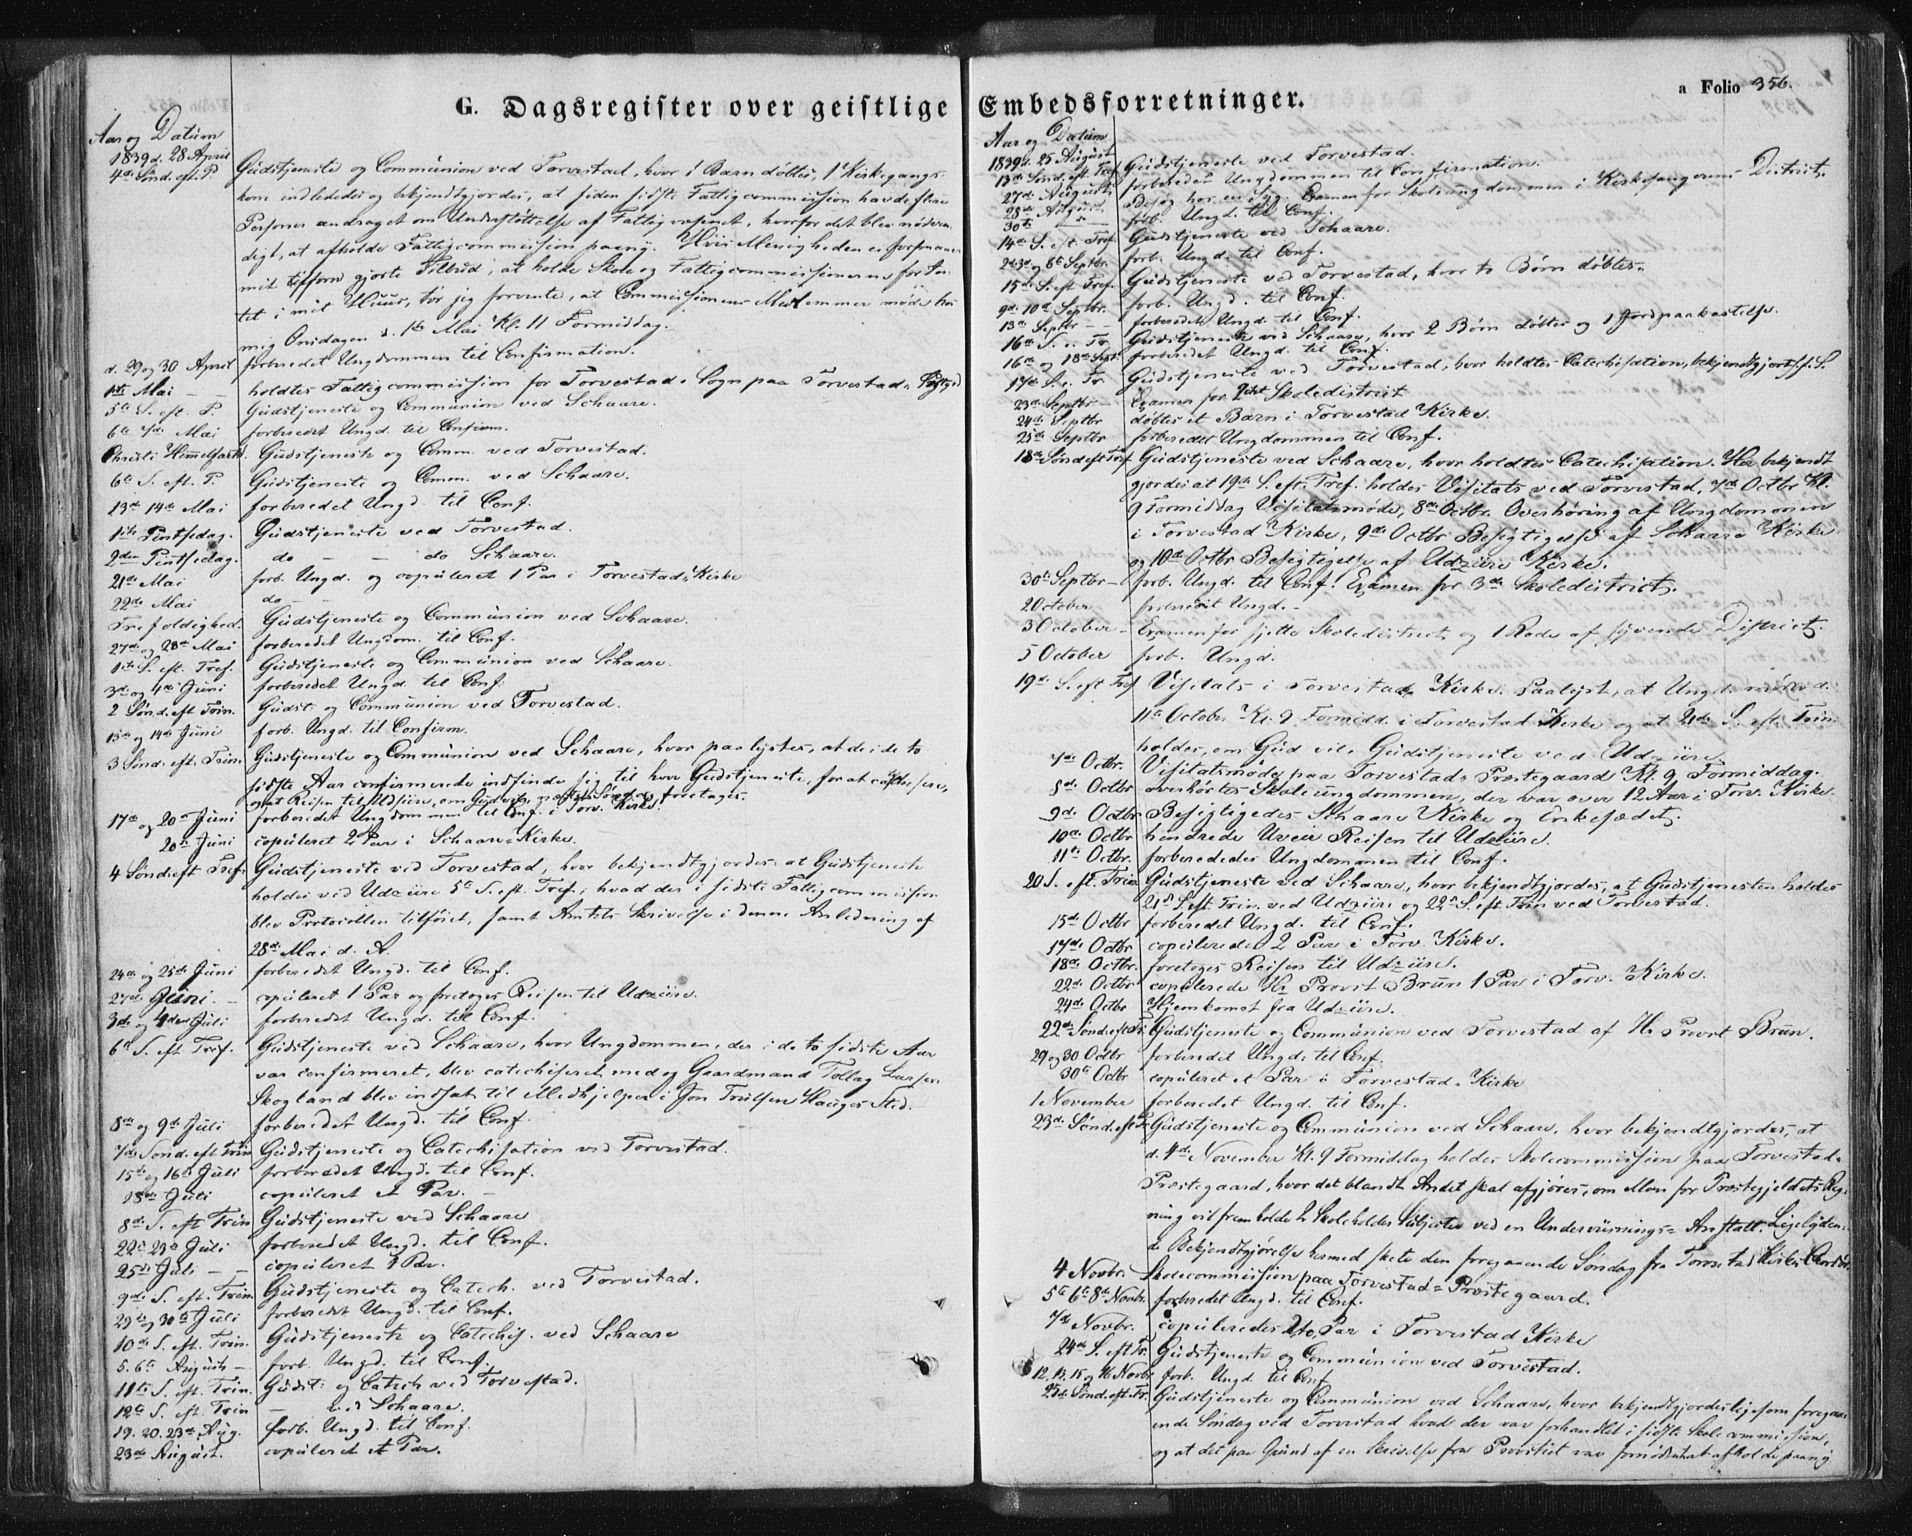 G. Dagsregister over geistlige
Aar og Datum
1839 d. 28 April Gudstjeneste og Communion ved Torvestad, hvor 1 Barn døbtes, 1 Kirkegangs-
4de Sønd. eft. P. kone indlededes og bekjendtgjordes, at siden sidste Fattigcommission havde flere
Personer andraget om Understøttelse af Fattigvæsenet, hvorfor det blev nødven-
digt, at afholde Fattigcommission paany. Hvis Menigheden ei forsmaaer
mit tilforn gjorte Tilbud, at holde Skole og Fattigcommissionerne for In-
tet i mit Huus, tør jeg forvente, at Commissionens Medlemmer møde hos
mig Onsdagen d. 1ste Mai Kl. 11 Formiddag.
d. 29 og 30 April forberedet Ungdommen til Confirmation.
1ste Mai holdtes Fattigcommission for Torvestads Sogn paa Torvestads
5te S. eft. P. Gudstjeneste og Communion ved Schaare.
6te 7de Mai forberedet Ungd. til Confirm.
Christi Himmelfarts Gudstjeneste og Comm. ved Torvestad.
6te S. eft. P. Gudstjeneste og Comm. ved Schaare.
13de 14de Mai forberedet Ungd. til Conf.
1ste Pintsedag. Gudstjeneste ved Torvestad.
2den Pintsedag. do — — do Schaare.
21de Mai forb. Ungd. og copuleret 1 Par i Torvestads Kirke
22de Mai do —
Trefoldighed. Gudstjeneste og Communion ved Schaare.
27de og 28de Mai forberedet Ungdom. til Conf.
1ste S. eft. Tref. Gudstjeneste og Communion ved Schaare.
3de og 4de Juni forberedet Ungd. til Conf.
2 Sønd. eft. Trin. Gudst. og Communion ved Torvestad.
13de og 14de Juni forb. Ungd. til Confirm.
3 Sønd. eft. Trin. Gudstjeneste og Communion ved Schaare, hvor paalystes, at de i de to
sidste Aar confirmerede indfinde sig til hver Gudstjeneste, for at catechiseres,
og at Reisen til Udsiire, om Gud vil, næste Søndag foretages.
17de og 20de Juni forberedet Ungdommen til Conf. i Torv. Kirke.
20de Juni copuleret 2 Par i Schaare Kirke.
4 Sønd. eft. Tref. Gudstjeneste ved Torvestad, hvor bekjendtgjordes at Gudstjeneste
holdes ved Udziire 5te S. eft. Tref., hvad der i sidste Fattigcommission
blev Protocollen tilføiet, samt Amtets Skrivelse i denne Anledning af
28de Mai d. A.
24de og 25de Juni forberedet Ungd. til Conf.
27de Juni. — copuleret 1 Par og foretoges Reisen til Udziire.
3de og 4den Juli forberedet Ungd. til Conf.
6te S. eft Tref. Gudstjeneste ved Schaare, hvor Ungdommen, der i de to sidste Aar
var confirmeret, blev catechiseret med og Gaardmand Tollag Larsen
Skogland blev indsat til Medhjelper i Jon Trulsen Hauges Sted.
8de og 9de Juli forberedet Ungd. til Conf.
7de Sønd. eft trin Gudstjeneste og Catechisation ved Torvestad.
15de og 16de Juli forberedet Ungd. til Conf.
18de Juli copuleret et Par. —
8de S. eft Trin Gudstjeneste ved Schaare
22de 23de Juli forberedet Ungd. til Conf.
25de Juli — — copuleret 1 Par.
9de S. eft. Trin. Gudstjeneste og Catech. ved Torvestad.
29de og 30te Juli forberedet Ungd. til Conf.
10de S. eft. Trin. Gudstjeneste og Catechis. ved Schaare
5. 6te August — forb. Ungd. til Conf.
11te S. eft. Trin. Gudst. og Catech ved Torvestad.
12te S. eft. Trin — ved Schaare.
19. 20. 23de Aug. forb. Ungd. til Conf.
23de August. copuleret et Par.
Embedsforretninger.
a Folio 356.
Aar og Datum
1839 d. 25 August Gudstjeneste ved Torvestad.
13de Sønd. eft. Tref forberedet Ungdommen til Confirmation.
27de August Besøg hos en Syg. Examen for Skoleungdommen i Kirkesangerens District.
28de August forb. Ungd. til Conf.
30te —
14de S. eft. Tref. Gudstjeneste ved Schaare.
2de 3de og 6te Septbr. forb. Ungd. til Conf.
15de S. eft Tref. Gudstjeneste ved Torvestad, hvor to Børn døbtes.
9de 10de Septbr. forb. Ungd. til Conf.
13de Septbr — forberedet Ungd. til Conf.
16de S. e. Tr. Gudstjeneste ved Schaare, hvor 2 Børn døbtes og 1 Jordpaakastelse.
16de og 18de Sept. forberedet Ungd. til Conf.
17de S. e. Tr. Gudstjeneste ved Torvestad, hvor holdtes Catechisation, bekjendtgjort f. f. S.
23de Septbr — Examen for Skoledistrict
24de Septbr døbtes et Barn i Torvestad Kirke.
25de Septbr forberedet Ungdommen til Conf.
18de Sønd eft Tref Gudstjeneste ved Schaare, hvor holdtes Catechisation. Her bekjendt
gjordes at 19de S. eft. Tref. holdes Visitats ved Torvestad, 7de Octbr Kl.
9 Formiddag Visitatsmøde, 8de Octbr. Overhøring af Ungdommen
i Torvestad Kirke, 9de Octbr Besigtigelse af Schaare Kirke
og 10de Octbr Besigtigelse af Udziire Kirke.
30te Septbr — forb. Ungd. til Conf. Examen for 3de Skoledistrict.
2 October forberedt Ungd. —
3 October — Examen for sjette Skoledistrict og 1 Rode af syvende District.
5 October forb. Ungd.
19de S. eft Tref Visitats i Torvestads Kirke. Paalyst, at Ungd. møder d.
11te October Kl. 9 Formidd. i Torvestad Kirke og at 21de S. eft. Trin
holdes, om Gud vil, Gudstjeneste ved Udziire.
7de Octbr. Visitatsmøde paa Torvestads Præstegaard Kl. 9 Formiddag.
8de Octbr overhørtes Skoleungdommen, der var over 12 Aar i Torv. Kirke.
9de Octbr Besigtigedes Schaare Kirke og Enkesædet.
10de Octbr hindrede Uveir Reisen til Udziire.
11te Octbr. forberededes Ungdommen til Conf.
20 S. eft. Trin Gudstjeneste ved Schaare, hvor bekjendtgjordes, at Gudstjenesten holdes
21de S. eft Trin. ved Udziire og 22de S. eft Trin ved Torvestad.
15de Octbr forberedet Ungd. til Conf.
17de Octbr copuleredes 2 Par i Torv. Kirke.
18de Octbr. foretoges Reisen til Udziire.
22de Octbr copulerede Hr Provst Brun 1 Par i Torv. Kirke.
24de Octbr Hjemkomst fra Udziire.
22de Sønd. eft Tr. Gudstjeneste og Communion ved Torvestad af Hr. Provst Brun.
29 og 30 Octbr forberedet Ungd. til Conf.
30te Octbr copuleret et Par i Torvestads Kirke
1 November forberedet Ungd. til Conf.
23de Sønd. eft Tr Gudstjeneste og Communion ved Schaare, hvor bekjendtgjordes, at
d. 4de November Kl. 9 Formiddag holdes Skolecommission paa Torvestads
Præstegaard, hvor det blandt Andet skal afgjøres, om Man for Præstegjeldets Reg-
ning vil fremholde 2 Skoleholder Subjecter ved en Underviisnings-Anstalt. Ligelyden-
de Bekjendtgjørelse hermed skete den foregaaende Søndag fra Torvestad Kirkes
4 Novbr. Skolecommission paa Torvestads Præstegaard.
5te 6te 8de Novbr. forberedet Ungd. til Conf.
7de Novbr. copuleredes to Par i Torvestad Kirke
24de S. eft Tr. Gudstjeneste og Communion ved Torvestad.
12, 13, 15 og 16 Novbr. forb. Ungd til Conf
25de Sønd. eft. Tr. Gudstjeneste og Communion ved Schaare, hvor bekjendtgjordes ligesom foregaa-
ende Søndag ved Torvestad hvad der var forhandlet i sidste Skolecommission,
og at det paa Grund af en Skrivelse fra Provstiet var fornødent at afholde paany